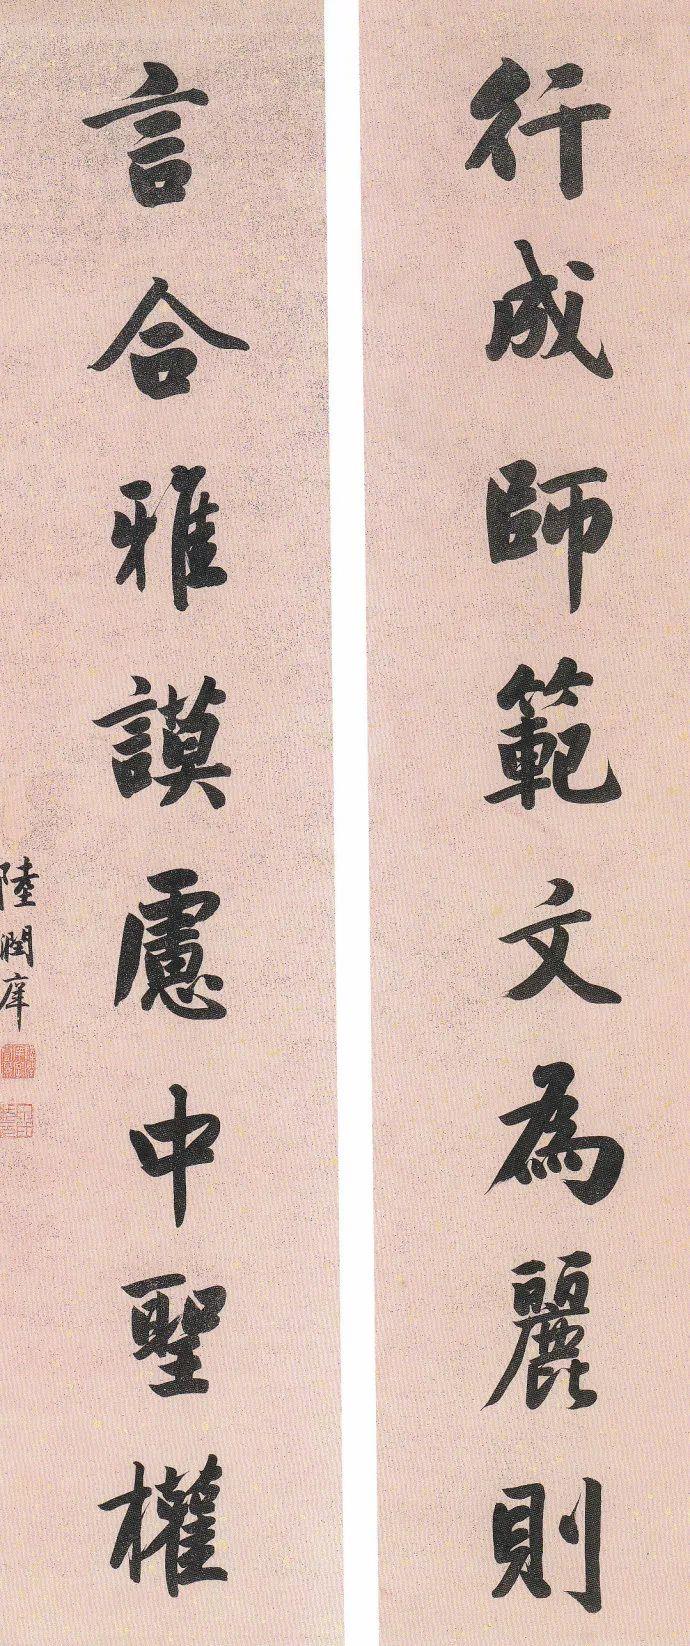 行成師範文為麗則
言合雅謨慮中聖權
陸潤庠